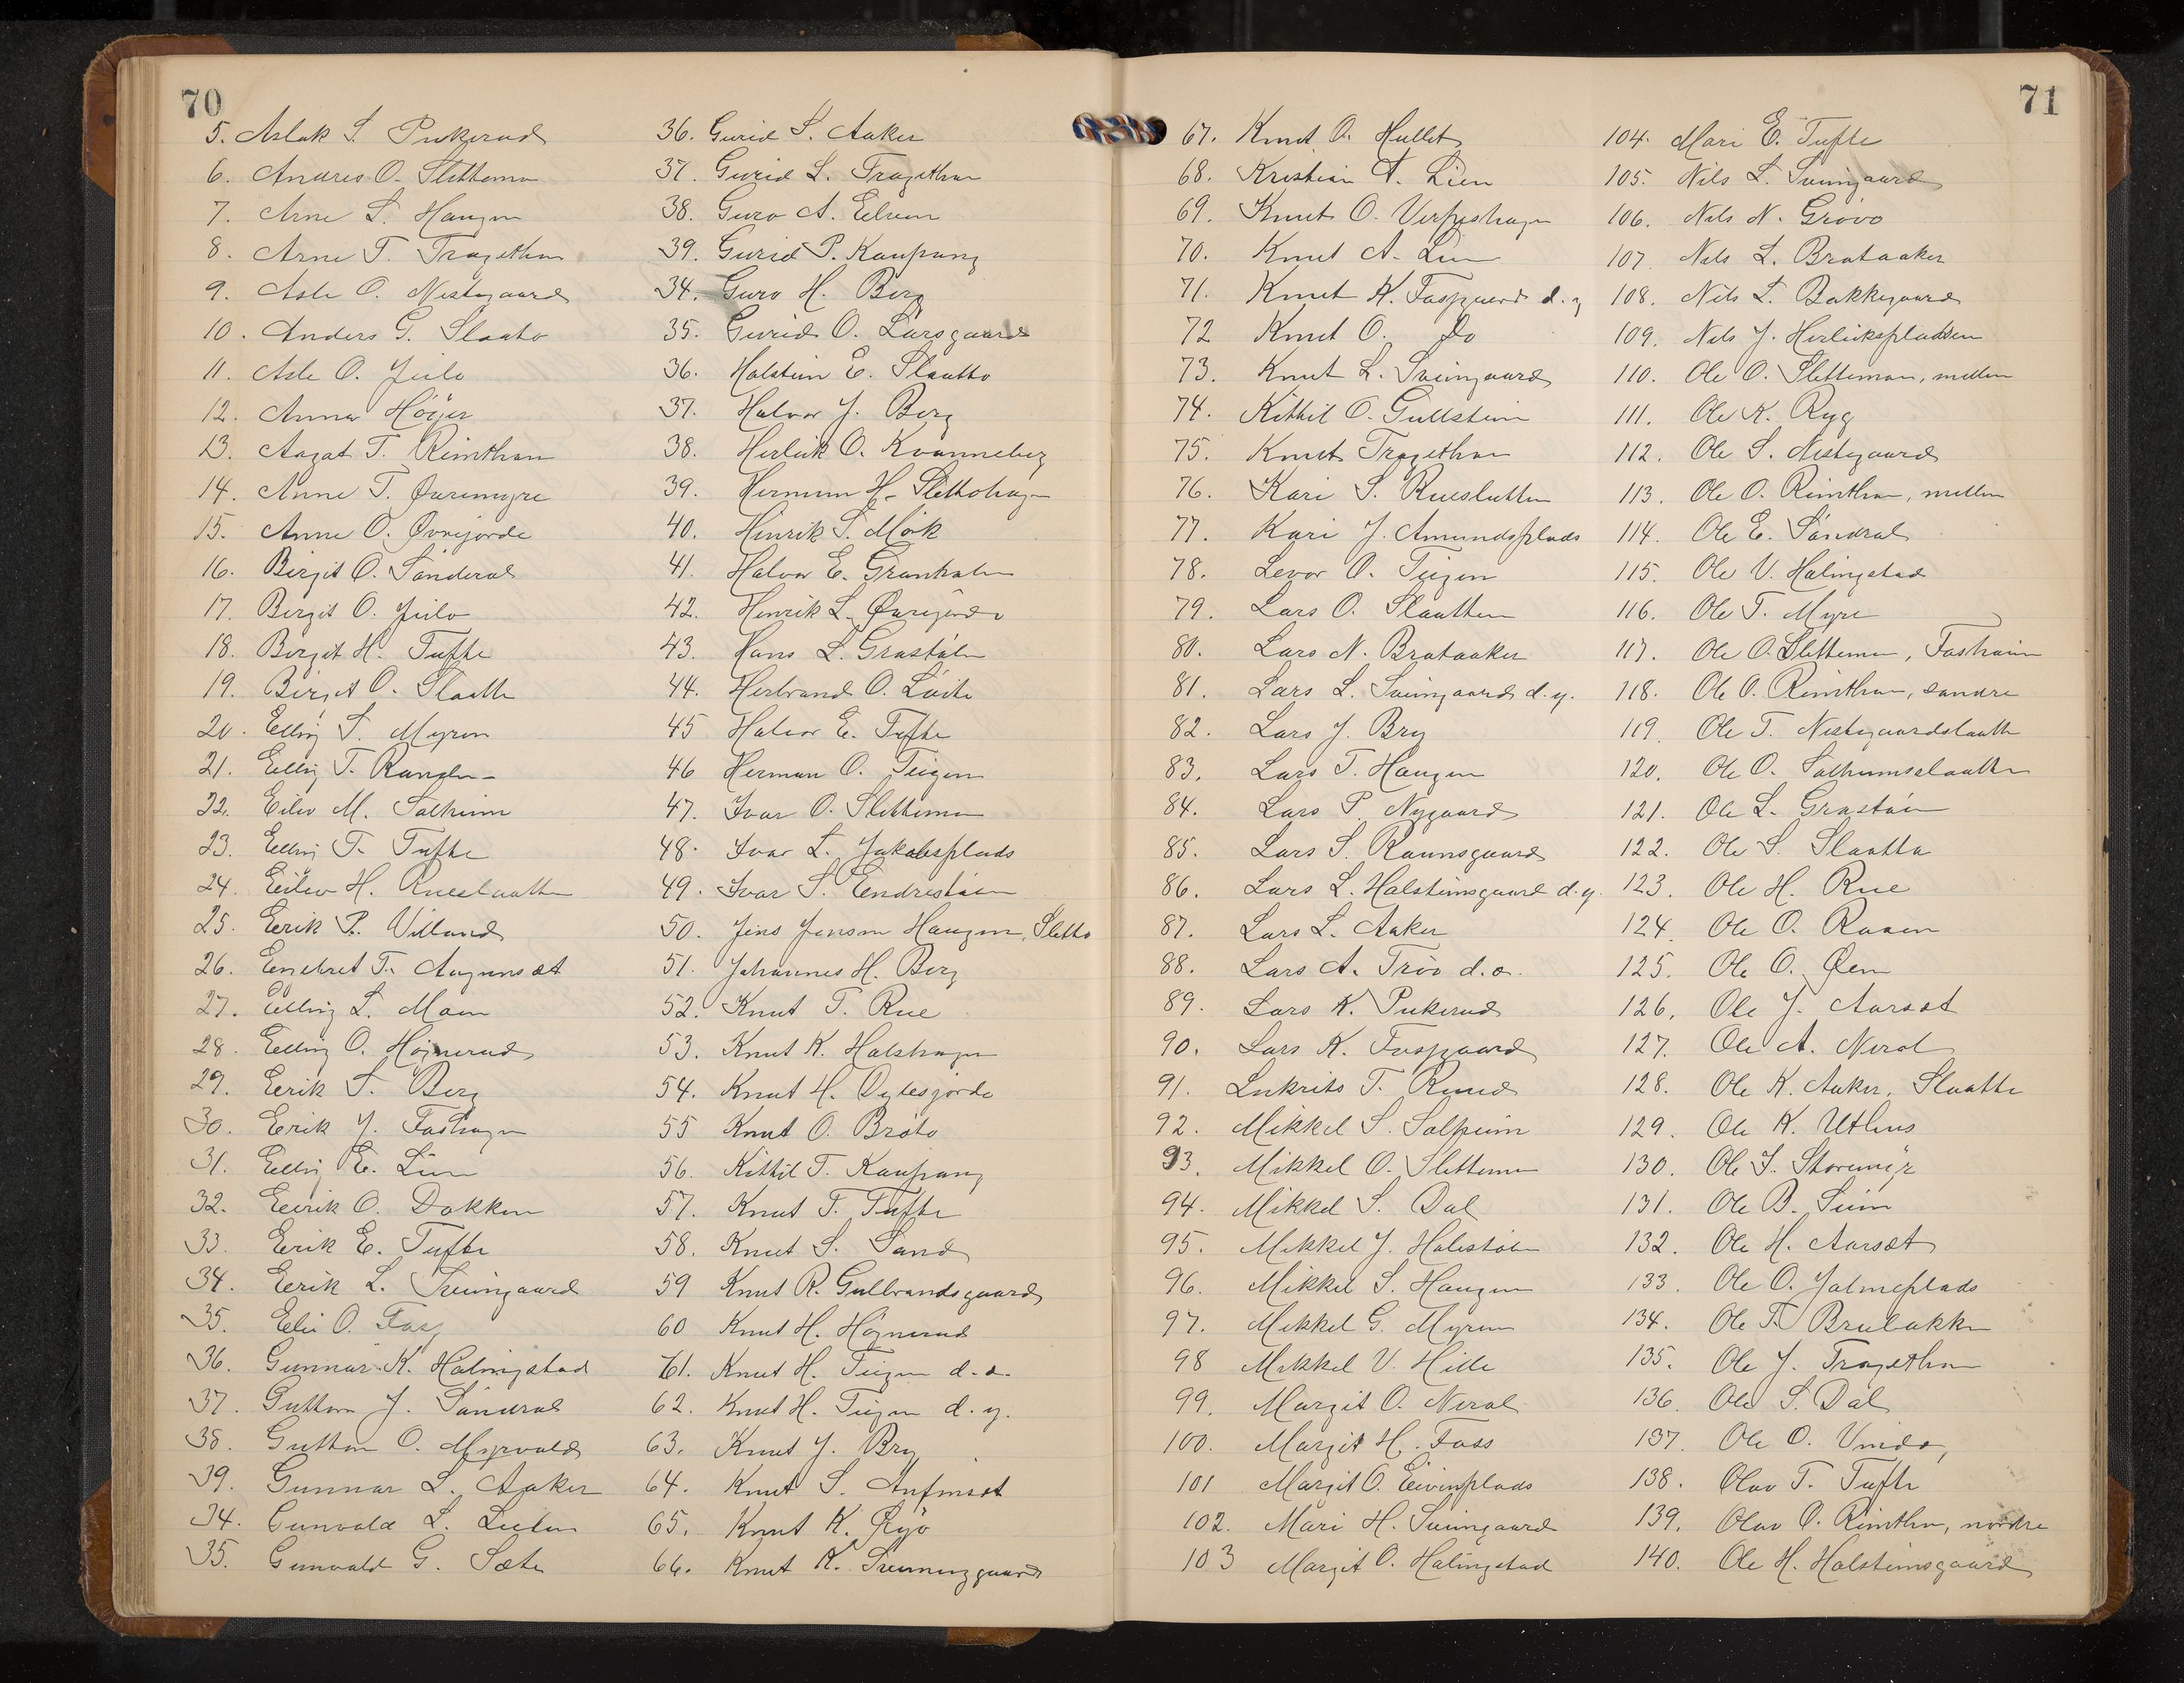 70
5. Aslak S. Pukerud
6. Andres O. Sletteme
7. Arne L. Haugen
8. Arne T. Tragethon
9. Asle O. Nestegaard
10. Anders G. Slaato
11. Asle O. Jeilo
12. Anna Höyer
13. Aagat T. Rimthun
14. Anne T. Øvremyre
15. Anne O. Øvrejorde
16. Birgit O. Sånderal
17. Birgit O. Jeilo
18. Birgit H. Tufte
19. Birgit O. Slaatte
20. Elling S. Myren
21. Elling T. Randen
22. Eilev M. Solheim
23. Elling T. Tufte
24. Eilev H. Rueslaatten
25. Eerik P. Villand
26. Engebret T. Augunsæt
27. Elling L. Moen
28. Elling O. Højnerud
29. Eerik S. Berg
30. Erik J. Fashagen
31. Elling E. Lien
32. Eerik O. Dokken
33. Eerik E. Tufte
34. Eerik L. Sveingaard
35. Eli O. Fas
36. Gunnar K. Halingstad
37. Guttorm J. Sånderal
38. Guttorm O. Myrvold
39. Gunnar L. Aaker
34. Gunvald L.
35. Gunvald G. Sæte
36. Gurid S. Aaker
37. Gurid L. Tragethon
38. Guro A. Eelven
39. Gurid P. Kaupang
34. Guro H. Berg
35. Gurid O. Larsgaard
36. Halstein E. Slaatto
37. Halvor J. Berg
38. Herleik O. Kvanneberg
39. Herman H. Slettohagen
40. Hinrik S. Mök
41. Halvor E. Granhalm
42. Henrik L. Øvrejorde
43. Hans L. Grøstølen
44. Herbrand O. Löite
45 Halvor E. Tufte
46 Herman O. Teigen
47. Ivar O. Slettemo
48. Ivar L. Jakobsplads
49. Ivar S. Eendrestöen
50. Jens Jenson Haugen, Sletto
51. Johannes H. Berg
52. Knut T. Rue
53. Knut K. Halshagen
54. Knut H. Dytesjorde
55 Knut O. Bröto
56. Kittil T. Kaupang
57. Knut T. Tufte
58. Knut S. Sand
59 Knut R. Gulbrandsgaard
60 Knut H. Højnerud
61. Knut H. Teigen d.e.
62. Knut H. Teigen d.y.
63. Knut J. Bry
64. Knut S. Anfinsæt
65. Knut K. Ryö
66. Knut K. Sveinunggaard
71
67. Knut O. Hullet
68. Kristian A. Lien
69. Knut O. Verpeshagen
70. Knut A. Lien
71. Knut K. Fasgaard d.y
72 Knut O. Do
73. Knut L. Sveingaard
74. Kittil O. Gullstein
75. Knut Tragethon
76. Kari S. Rueslatten
77. Kari J. Amundsplads
78. Levor O. Teigen
79. Lars O. Slaatten
80. Lars N. Brataaker
81. Lars L. Sveingaard d.y.
82. Lars J. Bry
83. Lars T. Haugen
84. Lars P. Nygaard
85. Lars S. Raunsgaard
86. Lars L. Halsteinsgaard d.y.
87. Lars L. Aaker
88. Lars A. Tröo d.e.
89. Lars K. Pukerud
90. Lars K. Fasgaard
91. Lukrits T. Ruud
92. Mikkel S. Solheim
93. Mikkel O. Sletteme
94. Mikkel S. Dal
95. Mikkel J. Holestölen
96. Mikkel S. Haugen
97. Mikkel G. Myren
98 Mikkel V. Hille
99. Margit O. Neral
100. Margit H. Foss
101 Margit O. Eivinplads
102. Mari H. Sveingaard
103 Margit O. Halingstad
104. Mari E. Tufte
105. Nils L. Sveingaard
106. Nils N. Grövo
107. Nils L. Brataaker
108. Nils L. Bakkegaard
109. Nils J. Herleikspladsen
110. Ole O. Slettemoen, mellem
111. Ole K. Ryg
112. Ole S. Nestegaard
113. Ole O. Rimthun, mellem
114. Ole E. Sándral
115. Ole V. Halingstad
116. Ole T. Myre
117. Ole O. Slettemen, Fasheim
118. Ole O. Rimthun, søndre
119. Ole T. Nestegaardslaatte
120. Ole O. Solheimslaatten
121. Ole L. Grøstöen
122. Ole S. Slaatta
123. Ole H. Rue
124. Ole O. Raaen
125. Ole O. Øen
126. Ole J. Aarsæt
127. Ole A. Neral
128. Ole K. Aaker, Slaatte
129. Ole K. Uthus
130. Ole S. Storemyr
131. Ole B. Seim
132. Ole H. Aarsæt
133. Ole O. Jalmeplads
134. Ole T. Brubakken
135. Ole J. Tragethon
136. Ole S. Dal
137. Ole O. Vindo,
138. Olav T. Tufte
139. Olav O. Rimthun, nordre
140. Ole H. Halsteinsgaard